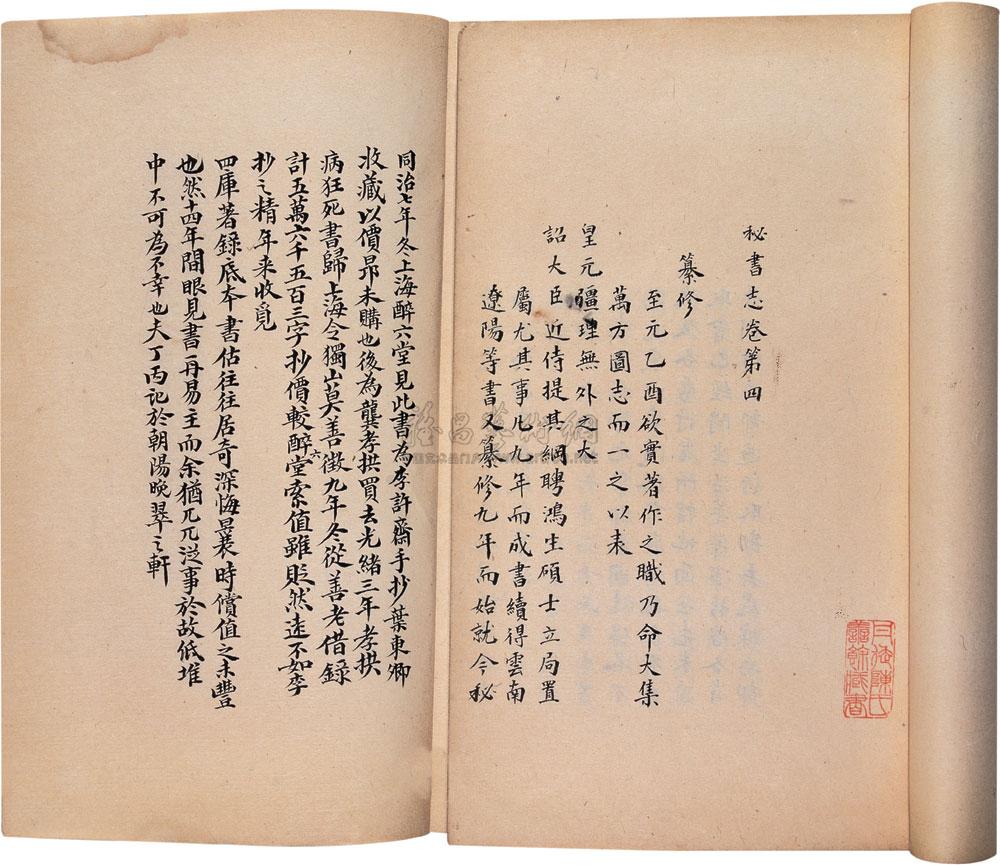 秘書志卷第四
纂修
至元乙酉欲實著作之職乃命大集
萬方圖志而一之以表
皇元疆理無外之大
詔大臣近侍提其綱聘鴻生碩士立局置
屬尤其事凡九年而成書續得雲南
遼陽等書又纂修九年而始就今秘
同治七年冬上海醉六堂見此書為李許齋手抄葉東卿
收藏以價昂未購也後為龔孝拱買去光緒三年孝拱
病狂死書歸上海令獨山莫善徵九年冬從善老借錄
計五萬六千五百三字抄價較醉六堂索值雖貶然遠不如李
抄之精年来收覓
四庫著錄底本書估往往居奇深悔曩時償值之未豐
也然十四年間眼見書再易主而余猶兀兀從事於故低堆
中不可為不幸也夫丁丙記於朝陽晚翠之軒